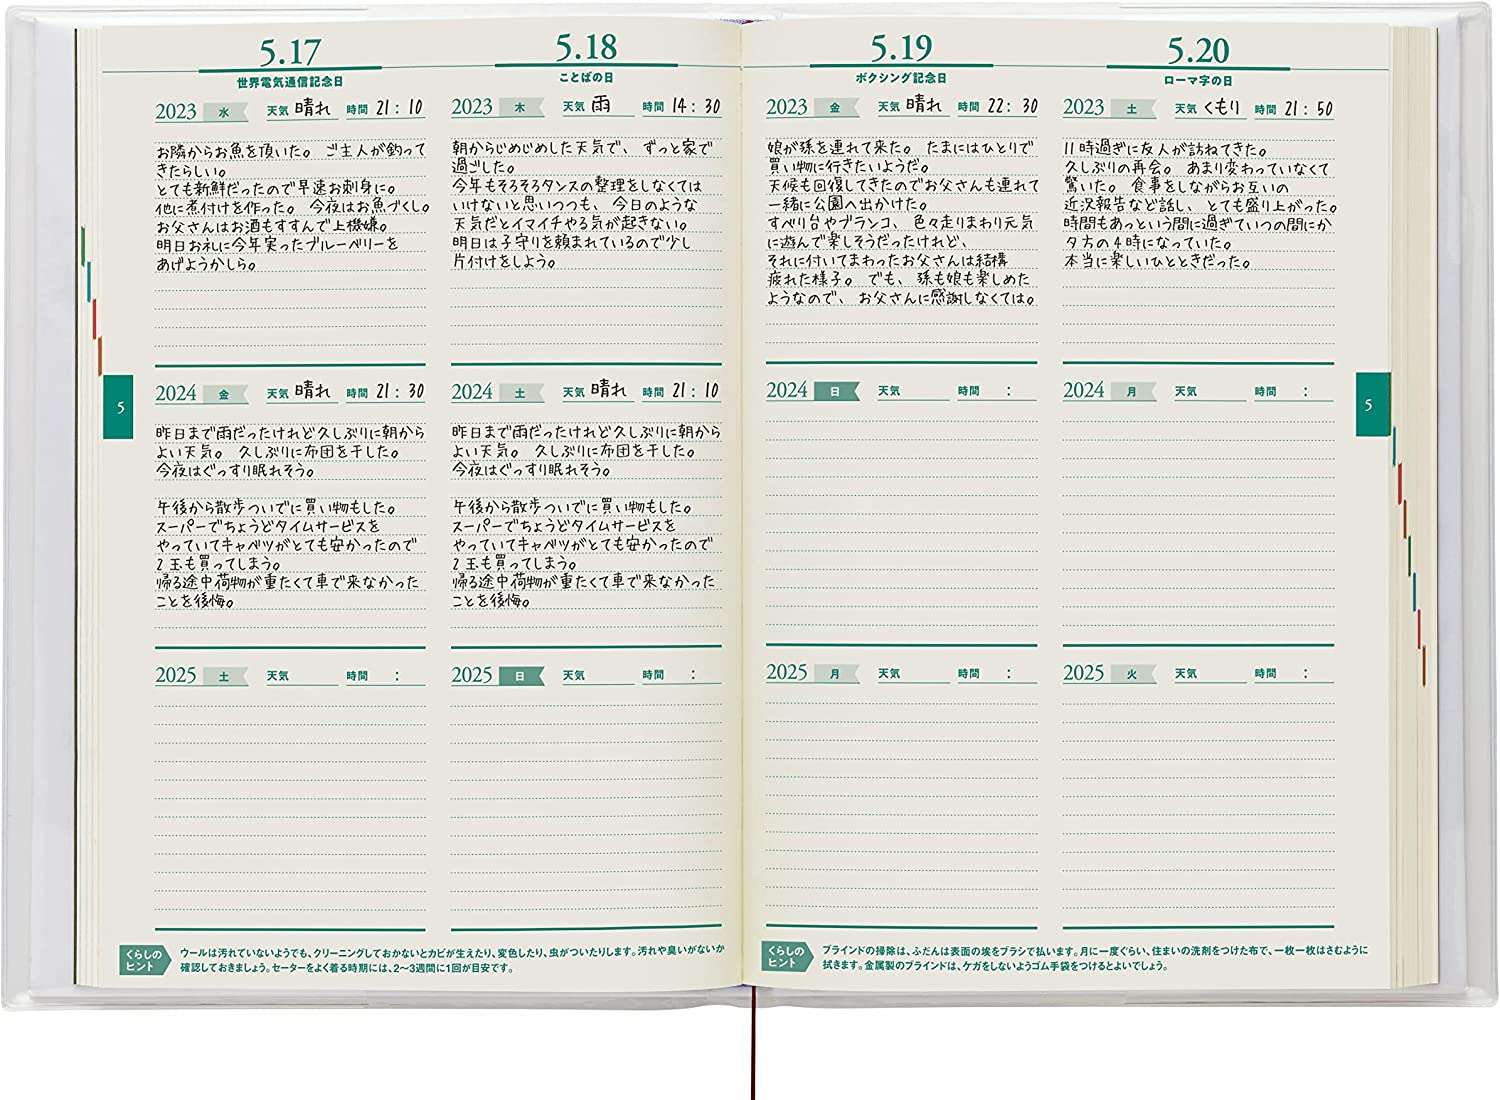 5.17
世界電気通信記念日
2023 水 天気 晴れ 時間 21:10
お隣からお魚を頂いた。ご主人が釣って
きたらしい。
とても新鮮だったので早速お刺身に。
他に煮付けを作った。今夜はお魚づくし。
お父さんはお酒もすすんで上機嫌。
明日お礼に今年実ったブルーベリーを
あげようかしら。
2024 金 天気 晴れ 時間 21:30
昨日まで雨だったけれど久しぶりに朝から
よい天気。久しぶりに布団を干した。
今夜はぐっすり眠れそう。
午後から散歩ついでに買い物もした。
スーパーでちょうどタイムサービスを
やっていてキャベツがとても安かったので
2玉も買ってしまう。
帰る途中荷物が重たくて車で来なかった
ことを後悔。
2025 土 天気 時間 :
5.18
ことばの日
2023 木 天気 雨 時間 14:30
朝からじめじめした天気で、ずっと家で
過ごした。
今年もそろそろタンスの整理をしなくては
いけないと思いつつも、今日のような
天気だとイマイチやる気が起きない。
明日は子守りを頼まれているので少し
片付けをしよう。
2024 土 天気 晴れ 時間 21:10
昨日まで雨だったけれど久しぶりに朝から
よい天気。久しぶりに布団を干した。
今夜はぐっすり眠れそう。
午後から散歩ついでに買い物もした。
スーパーでちょうどタイムサービスを
やっていてキャベツがとても安かったので
2玉も買ってしまう。
帰る途中荷物が重たくて車で来なかった
ことを後悔。
2025 日 天気 時間 :
5
くらしの
ヒント
ウールは汚れていないようでも、クリーニングしておかないとカビが生えたり、変色したり、虫がついたりします。汚れや臭いがないか
確認しておきましょう。セーターをよく着る時期には、2〜3週間に1回が目安です。
5.19
ボクシング記念日
2023 金 天気 晴れ 時間 22:30
娘が孫を連れて来た。たまにはひとりで
買い物に行きたいようだ。
天候も回復してきたのでお父さんも連れて
一緒に公園へ出かけた。
すべり台やブランコ、色々走りまわり元気
に遊んで楽しそうだったけれど、
それに付いてまわったお父さんは結構
疲れた様子。でも、孫も娘も楽しめた
ようなので、お父さんに感謝しなくては。
2024 日 天気 時間 :
2025 月 天気 時間 :
5.20
ローマ字の日
2023 土 天気 くもり 時間 21:50
11時過ぎに友人が訪ねてきた。
久しぶりの再会。あまり変わっていなくて
驚いた。食事をしながらお互いの
近況報告など話し、とても盛り上がった。
時間もあっという間に過ぎていつの間にか
夕方の4時になっていた。
本当に楽しいひとときだった。
2024 月 天気 時間 :
2025 火 天気 時間 :
5
くらしの
ヒント
ブラインドの掃除は、ふだんは表面の埃をブラシで払います。月に一度ぐらい、住まいの洗剤をつけた布で、一枚一枚はさむように
拭きます。金属製のブラインドは、ケガをしないようゴム手袋をつけるとよいでしょう。